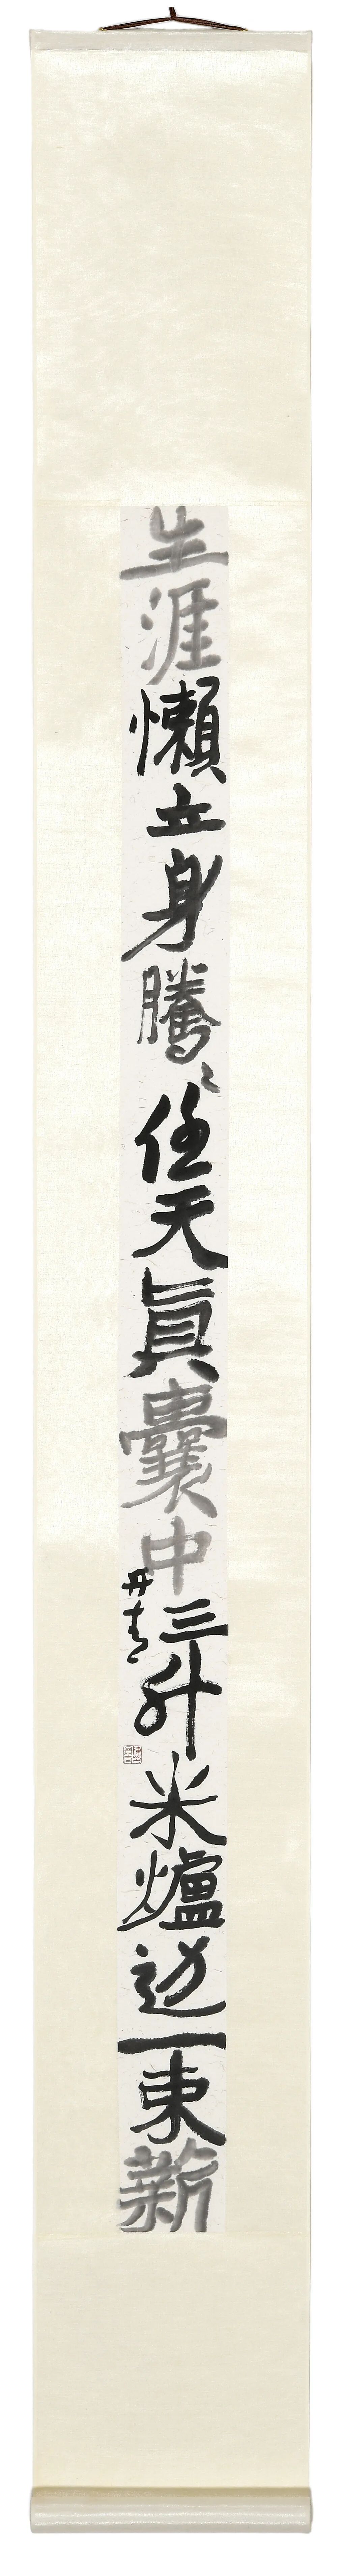 生涯懶立身騰〻任天眞囊中三升米爐边一束薪
丹青